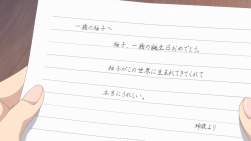 一歳の柚子へ
柚子、一歳の誕生日おめでとう。
柚子がこの世界に生まれてきてくれて
本当にうれしい。
より